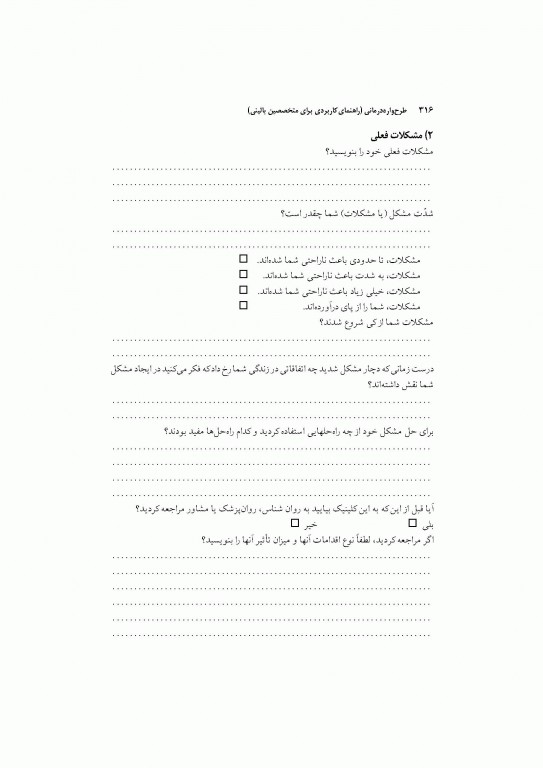 ۳۱۶ طرح‌واره‌درمانی (راهنمای کاربردی برای متخصصین بالینی)
۲) مشکلات فعلی
مشکلات فعلی خود را بنویسید؟
................................................................
................................................................
................................................................
شدّت مشکل (یا مشکلات) شما چقدر است؟
................................................................
................................................................
مشکلات، تا حدودی باعث ناراحتی شما شده‌اند. □
مشکلات، به شدت باعث ناراحتی شما شده‌اند. □
مشکلات، خیلی زیاد باعث ناراحتی شما شده‌اند. □
مشکلات، شما را از پای درآورده‌اند. □
مشکلات شما از کی شروع شدند؟
................................................................
................................................................
درست زمانی که دچار مشکل شدید چه اتفاقاتی در زندگی شما رخ داد که فکر می‌کنید در ایجاد مشکل
شما نقش داشته‌اند؟
................................................................
................................................................
برای حل مشکل خود از چه راه‌حلهایی استفاده کردید و کدام راه‌حل‌ها مفید بودند؟
................................................................
................................................................
................................................................
................................................................
آیا قبل از این‌که به این کلینیک بیایید به روان شناس، روان‌پزشک یا مشاور مراجعه کردید؟
بلی □ خیر □
اگر مراجعه کردید، لطفاً نوع اقدامات آنها و میزان تأثیر آنها را بنویسید؟
................................................................
................................................................
................................................................
................................................................
................................................................
................................................................